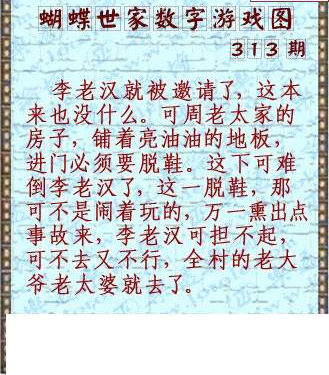 蝴蝶世家数字游戏图
313期
李老汉就被邀请了，这本
来也没什么。可周老太家的
房子，铺着亮油油的地板，
进门必须要脱鞋。这下可难
倒李老汉了，这一脱鞋，那
可不是闹着玩的，万一熏出点
事故来，李老汉可担不起，
可不去又不行，全村的老大
爷老太婆就去了。